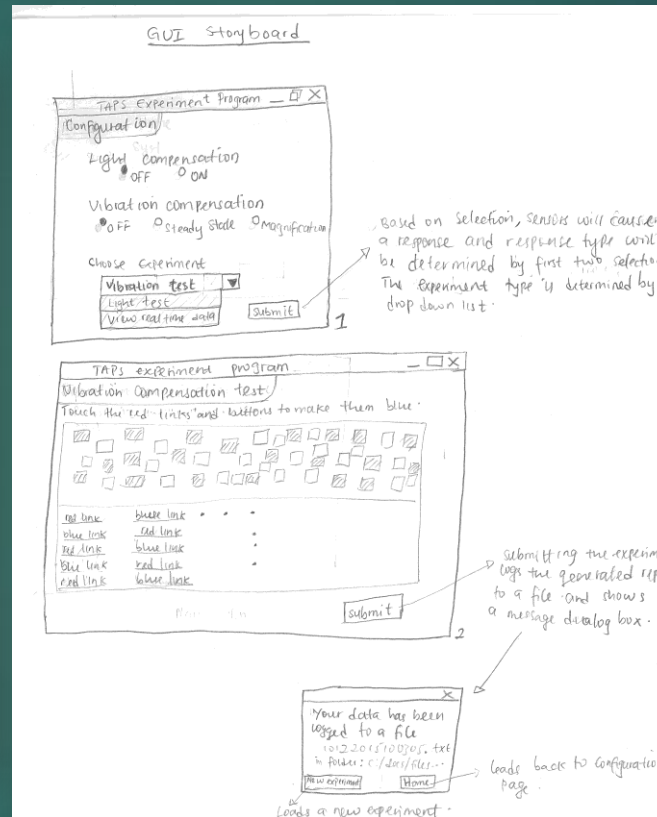 GUI Storyboard
TAPS Experiment Program
Configuration
Light compensation
OFF ON
Vibration compensation
OFF Steady State Magnification
Choose Experiment
Vibration test
Light test
View real time data
Submit
1
Based on selection, sensors will cause
a response and response type will
be determined by first two selection
The experiment type is determined by
drop down list.
TAPS experiment program
Vibration compensation test
Touch the red links and buttons to make them blue.
red link blue link
blue link red link
red link blue link
blue link red link
red link blue link
submit
2
submitting the experim
logs the generated rep
to a file and shows
a message dialog box.
Your data has been
logged to a file
.txt
in folder: c:/docs/files...
New experiment Home
Leads back to configuration
page.
Loads a new experiment.